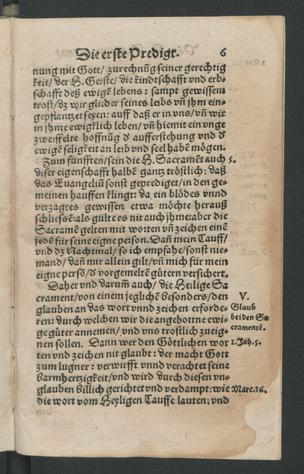 Die erste Predigt. 6
nung mit Gott/ zurechnũg seiner gerechtig
keit/ der H. Geiste/ die kindtschafft vnd erb-
schafft deß ewigẽ lebens: sampt gewissem
trost/ dz wir glider seines leibs vñ jhm ein-
gepflantzet seyen: auff daß er in vns/ vñ wir
in jhme ewigklich leben/ vñ hiemit ein vnge
zweiffelte hoffnũg d aufferstehung vnd d
ewigẽ seligkeit an leib vnd seel habẽ mögen.
Zum fünfften/ sein die H. Sacramẽt auch 5.
diser eigenschafft halbẽ gantz tröstlich: daß
das Euangeliũ sonst geprediget/ in den ge-
meinen hauffen klingt: da ein blödes vnnd
verzagtes gewissen etwa möchte herauß
schliessẽ: als gülte es nit auch jhme: aber die
Sacramẽ gelten mit worten vñ zeichen einẽ
jedẽ für seine eigne person. Dañ mein Tauff/
vnd dz Nachtmal/ so ich empfahe/ sonst nie-
mand/ dañ mir allein gilt/ vñ mich für mein
eigne persõ/ d vorgemeltẽ gütern versichert.
Daher vnd darum̃ auch/ die Heilige Sa
crament/ von einem jeglichẽ besonders/ den
glauben an das wort vnnd zeichen erforde-
ren: durch welchen wir die angebottne ewi-
ge güter annemen/ vnd vns tröstlich zueig-
nen sollen. Dann wer den Göttlichen wor
ten vnd zeichen nit glaubt: der macht Gott
zum lugner: verwirfft vnnd verachtet seine
barmhertzigkeit/ vnd wird durch diesen vn-
glauben billich gerichtet vnd verdampt: wie
die wort vom Heyligen Tauffe lauten: vnd
V.
Glaub
bei den Sa
cramentẽ.
1. Joh. 5.
Marc. 16.